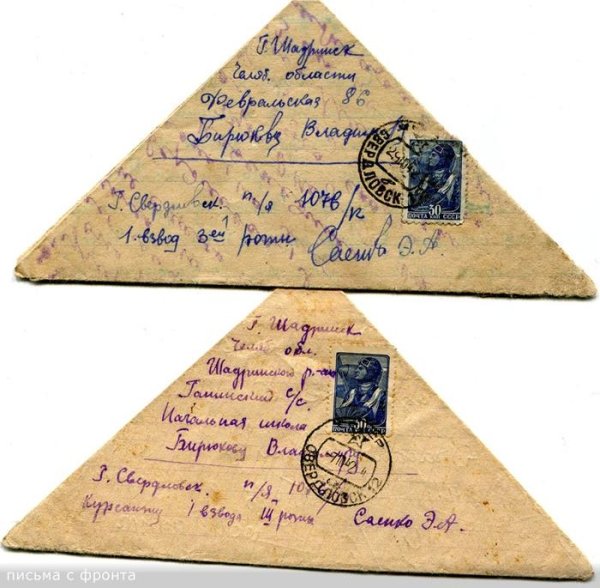 г. Шадринск
Челяб. области
Февральская 86
Бирюкову
СВЕРДЛОВСК
30
ПОЧТА СССР
г. Свердловск. п/я 1076/к
1. взвод 3ей роты Саенко Э. А.
г. Шадринск
Челяб обл.
Шадринского
с/с.
Начальная школа
Бирюкову
30
ПОЧТА СССР
СВЕРДЛОВСК 12
г. Свердловск. п/я
Курсанту 1 взвода III роты Саенко Э. А.
письма с фронта